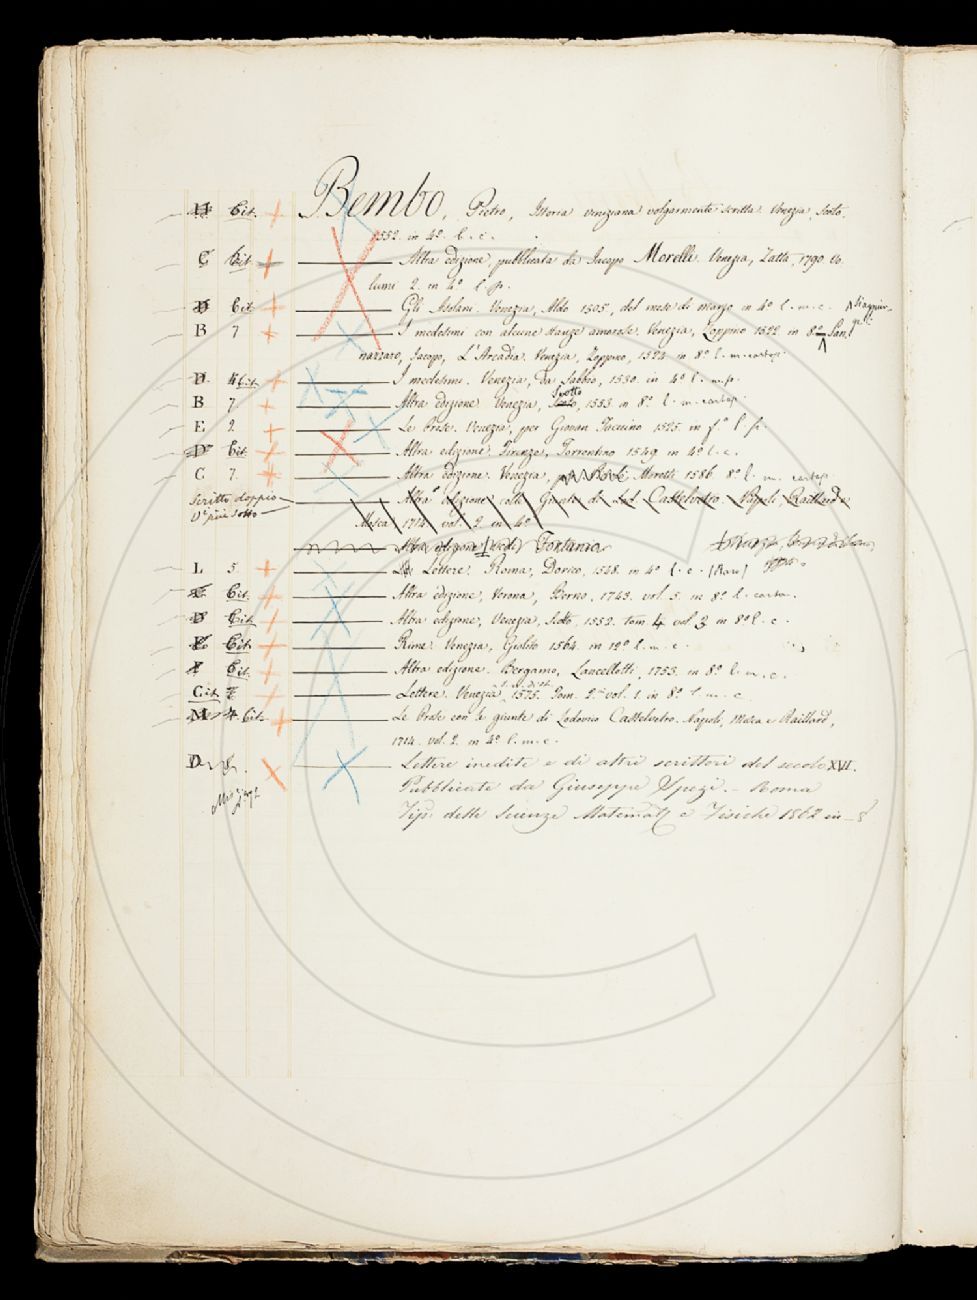 Cit. Bembo, Pietro, Istoria veneziana volgarmente scritta. Venezia, Scoto.
1552. in 4º. l. c.
C Cit Altra edizione, pubblicata da Jacopo Morelli. Venezia, Zatta, 1790 vo-
lumi 2. in 4º l. p.
D Cit Gli Asolani. Venezia, Aldo 1505, del mese di marzo in 4º l. m. c.
B 7 I medesimi con alcune stanze amorose. Venezia, Zoppino 1522 in 8º San-
nazzaro, Jacopo, L'Arcadia. Venezia, Zoppino, 1524 in 8º l. m. cartap.
D 4 Cit. I medesimi. Venezia, da Sabbio, 1530. in 4º l. m. p.
B 7 Altra edizione Venezia, Scotto, 1553 in 8º l. m. cartap.
E 2. Le Prose. Venezia, per Giovan Taccuino 1525. in fº l. p.
D Cit Altra edizione Firenze, Torrentino 1549 in 4º l. c.
C 7. Altra edizione. Venezia, Moretti 1586 8º l. m. cartap
Scritto doppio Altra edizione colle Giunte di Lod. Castelvetro. Napoli, Raillard e
Vº più sotto
Mosca, 1714 vol. 2. in 4º
Altra edizione (vedi) Fontanio
L 5. Le Lettere. Roma, Dorico, 1548. in 4º l. c. (Raro)
Cit. Altra edizione, Verona, Berno, 1743. vol. 5. in 8º l. carta.
D Cit. Altra edizione, Venezia, Scotto, 1552. tom 4 vol 3 in 8º l. c.
Cit. Rime Venezia, Giolito 1564. in 12º l. m. c.
Cit. Altra edizione. Bergamo, Lancellotti, 1753. in 8º l. m. c.
Cit. Lettere. Venezia, 1575. Tom. 2º vol. 1. in 8º l m. c
M 4 Cit. Le Prose con le giunte di Lodovico Castelvetro. Napoli, Mosca e Raillard,
1714. vol. 2. in 4º l. m. c.
D 8. Lettere inedite e di altri scrittori del secolo XVI.
Pubblicate da Giuseppe Spezi. – Roma
Tip. delle Scienze Matemat. e Fisiche 1862 in – 8º